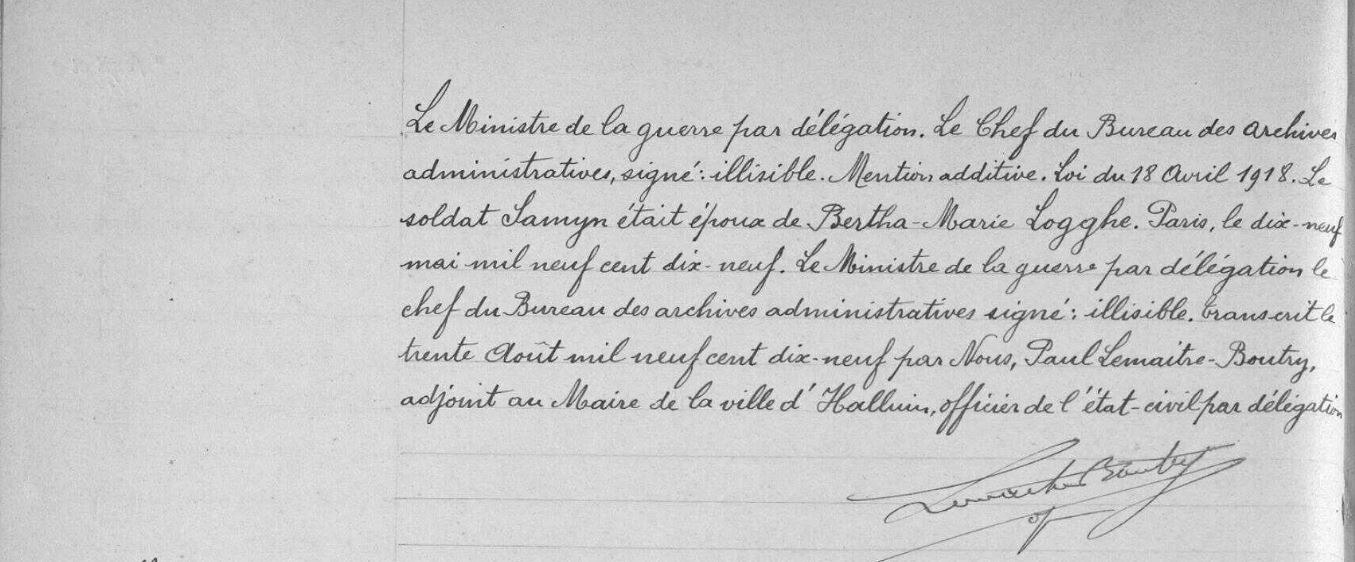 Le Ministre de la guerre par délégation. Le Chef du Bureau des archives
administratives, signé: illisible. Mention additive. Loi du 18 Avril 1918. Le
soldat Samyn était époux de Bertha-Marie Logghe. Paris, le dix-neuf
mai mil neuf cent dix-neuf. Le Ministre de la guerre par délégation le
chef du Bureau des archives administratives signé: illisible. Transcrit le
trente Août mil neuf cent dix-neuf par Nous, Paul Lemaitre-Boutry,
adjoint au Maire de la ville d'Halluin, officier de l'état-civil par délégation
Lemaitre Boutry